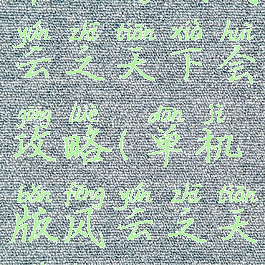 yún zhī tiān xià huì
云之天下会
gōng lüè dān jī
攻略(单机
bǎn fēng yún zhī tiān
版风云之天